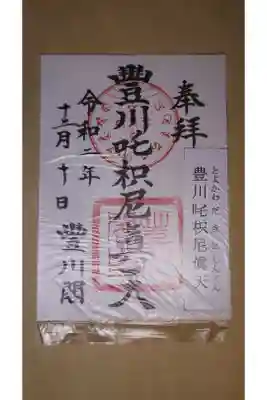 奉拝
豐川吒枳尼眞天
令和二年
十二月十日
豐川閣
とよかわだきにしんてん
豊川吒枳尼眞天